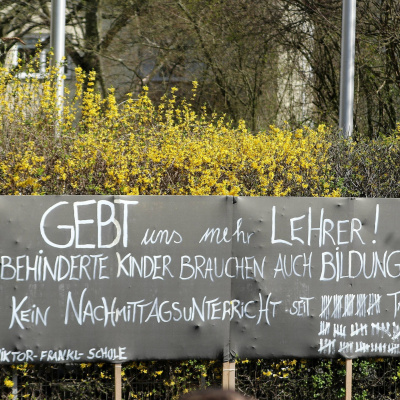 GEBT uns mehr LEHRER!
BEHINDERTE KINDER BRAUCHEN AUCH BILDUNG
KEIN NACHMITTAGSUNTERRICHT SEIT
VIKTOR-FRANKL-SCHULE